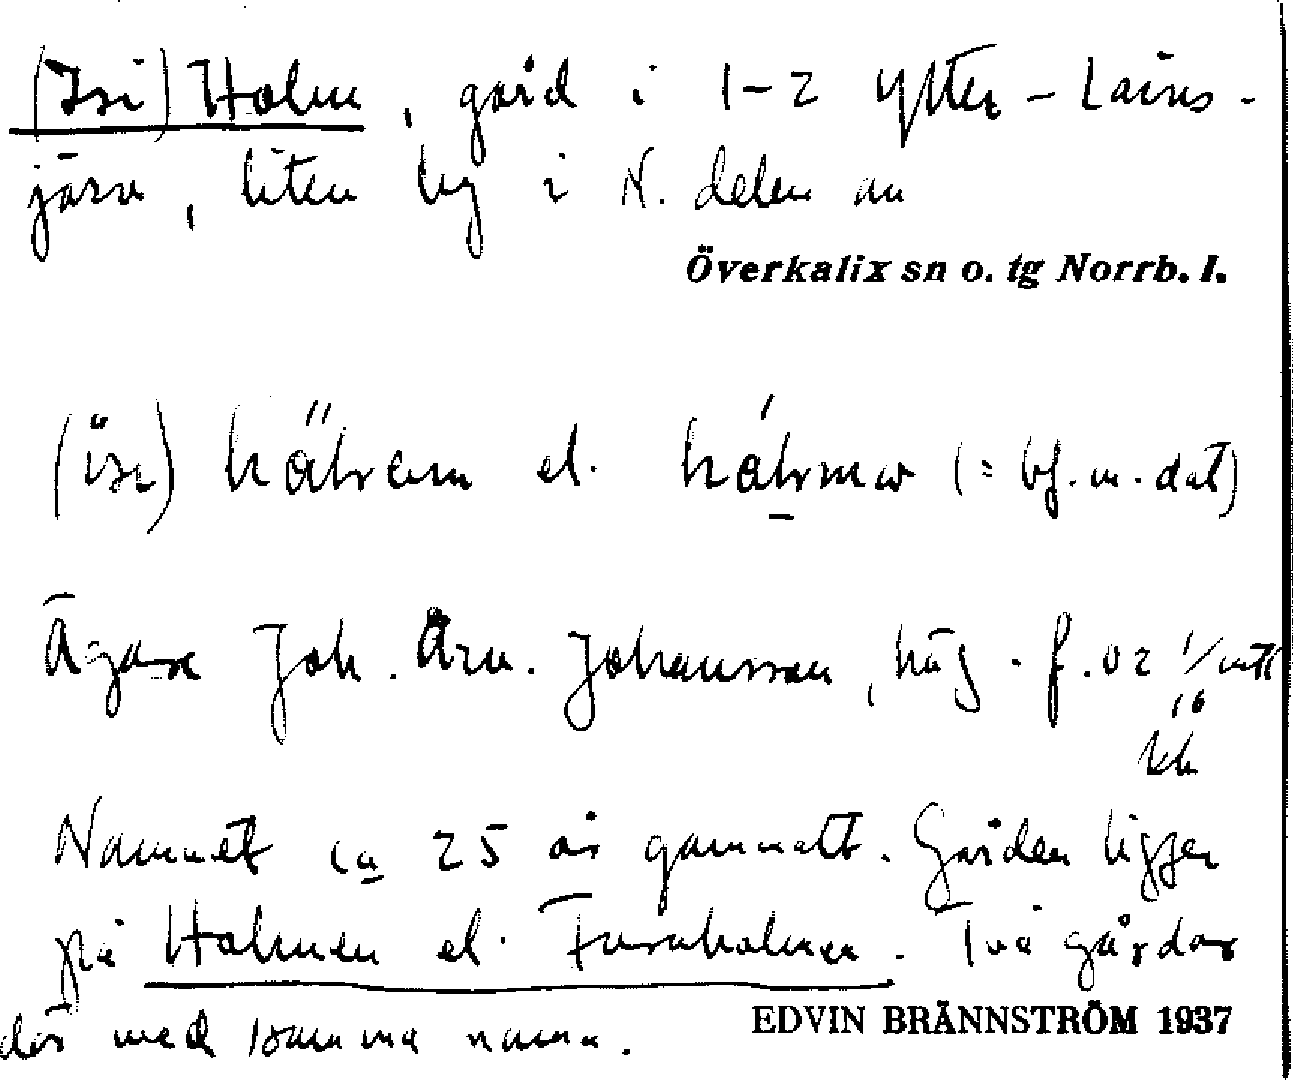 (Isi) Holm, gård i 1-2 Ytter-Lains-
järv, liten by i N. delen av
Överkalix sn o. tg Norrb. l.
(isi) hålvem el. hålvmw (= bf. m. dat)
Ägare Joh. Arv. Johansson, häg. f. 02 1/mtl
16
kh
Namnet ca 25 år gammalt. Gården ligger
på Holmen el. Furuholmen. Två gårdar
där med samma namn.
EDVIN BRÄNNSTRÖM 1937